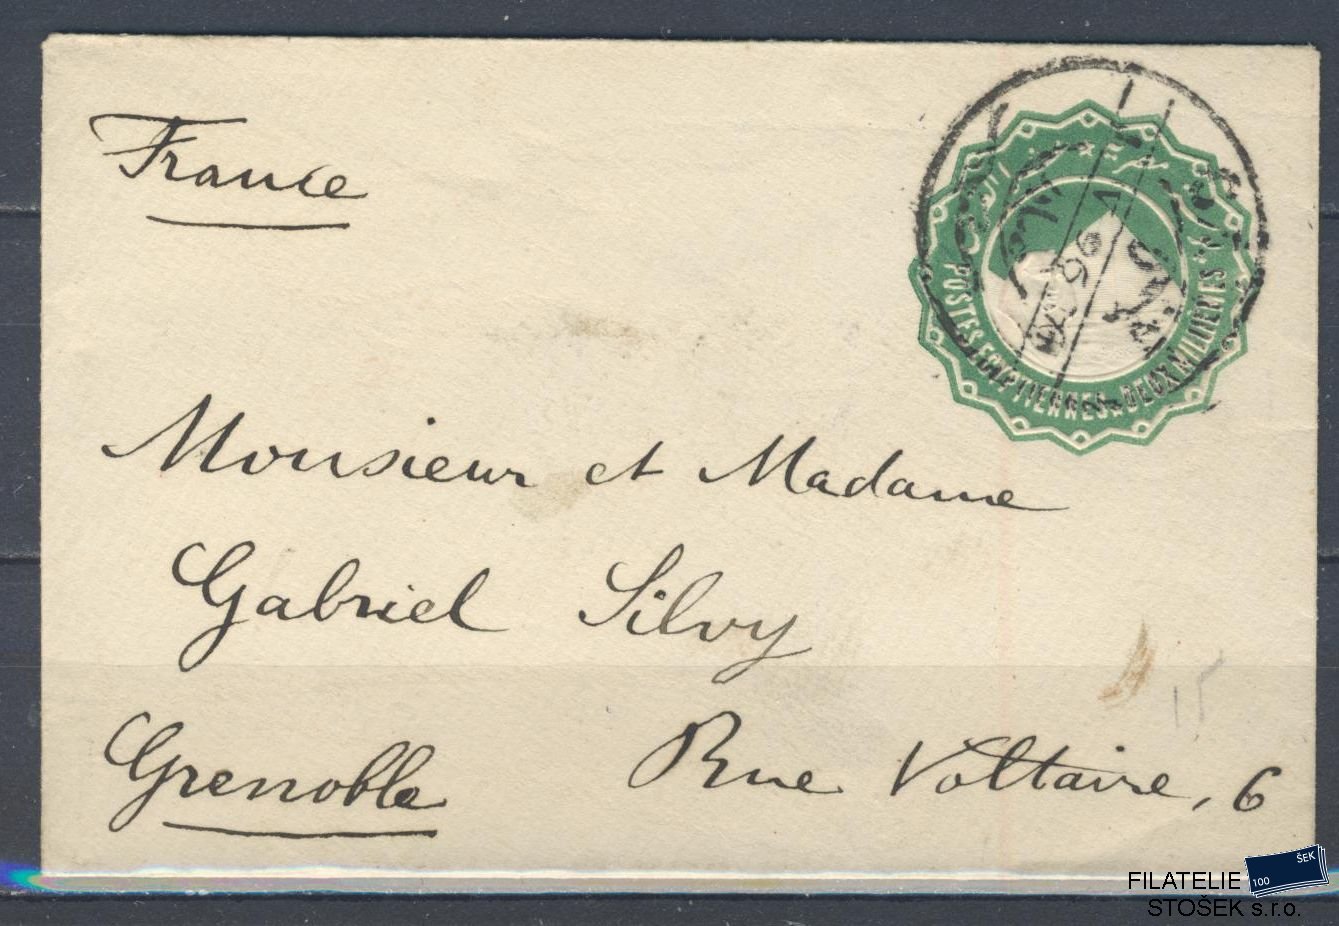 France
POSTES EGYPTIENNES. DEUX MILLIEMES
Monsieur et Madame
Gabriel Silvy
Grenoble Rue Voltaire, 6
15
FILATELIE
STOŠEK s.r.o.
100 ŠEK